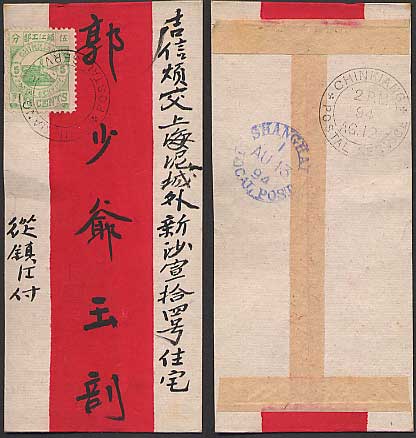 吉信煩交上海泥城外新沙宣拾四号住宅
郭少爺玉剖
從鎮江付
分五 部工江鎮
5 5
CENTS
POSTAL SERVICE
SHANGHAI
1
AU 13
94
LOCAL POST
CHINKIANG
2 P
94
AG. 12
POSTAL